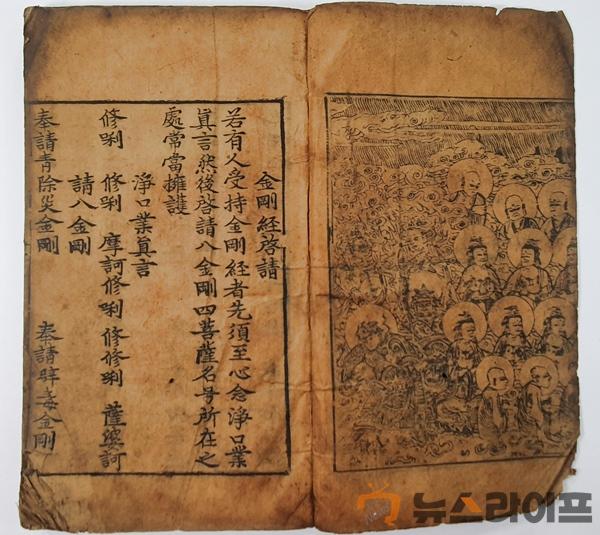 金剛經啓請
若有人受持金剛經者先須至心念淨口業
眞言然後啓請八金剛四菩薩名号所在之
處常當擁護
淨口業眞言
修唎 修唎 摩訶修唎 修修唎 薩婆訶
請八金剛
奉請青除災金剛 奉請辟毒金剛
뉴스라이프